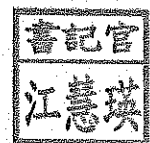 書記官
江慧瑛